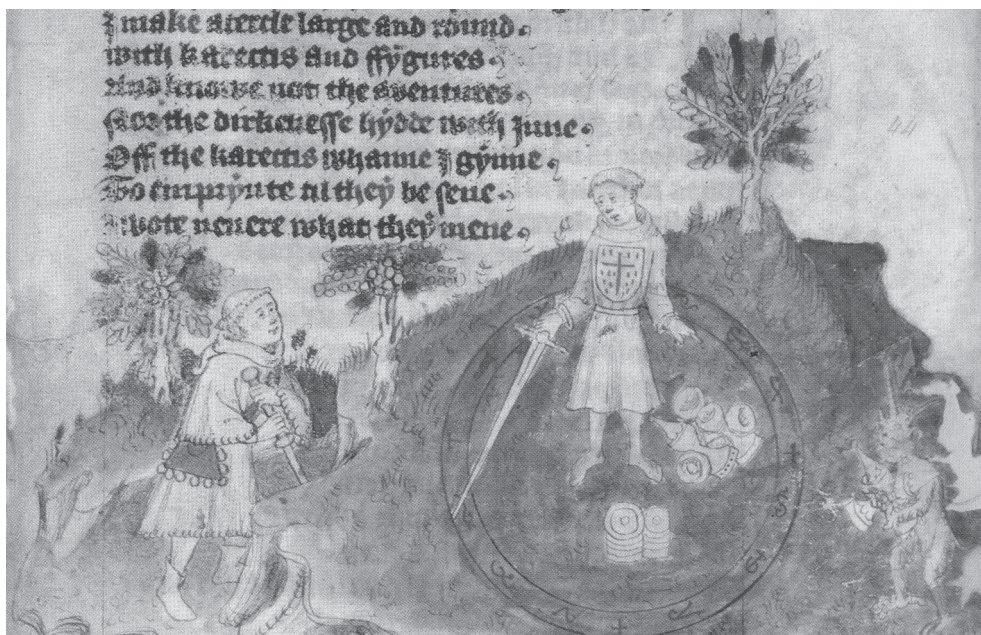 I make a cercle large and round
with karectis and ffygures
And knowe not the aventures
For the dirknesse hydde with Inne
Off the karectis whanne I gynne
To emprynte til they be sene
I wote nevere what they mene
44